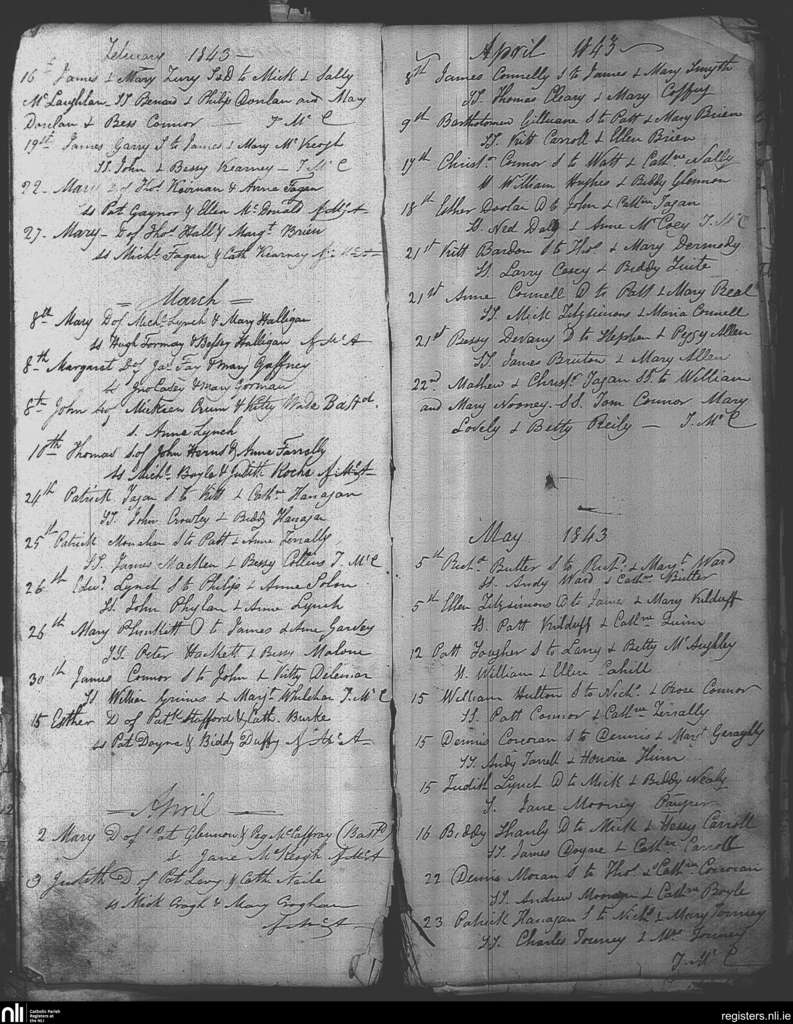 February 1843 —
16th James & Mary S & D to Mick & Sally
McLaughlan SS Benard & Philip Donlan and May
Donlan & Bess Connor — T. Mc C
19th James Garry S to James & Mary McKeogh
SS. John & Bessy Kearney — T. Mc C
22. Mary D of Thos Keirnan & Anne Fagan
ss Pat Gaynor & Ellen McDonald
27. Mary — D of Thos Hall & Margt Brien
ss Michl Fagan & Cath Kearney
= March =
8th Mary D of Michl Lynch & Mary Halligan
ss Hugh Tormay & Bessey Halligan J. McA
8th Margaret D of Jas Fay & Mary Gaffney
ss Jno Casey & Mary Gorman
8th John S of & Kitty Wade Bastd.
s. Anne Lynch
10th Thomas S of John & Anne Farrally
ss Michl Boyle & Judith Roche J McA
24th Patrick Fagan S to Kitt & Cathn Hanagan
SS. John Crowley & Biddy Hanagan
25th Patrick Monahan S to Patt & Anne
SS. James Macken & Bessy Collins T. Mc C
26th Edwd Lynch S to Philip & Anne
SS John Phylan & Anne Lynch
26th Mary Plunkett D to James & Anne Garvey
SS. Peter Hackett & Bessy Malone
30th James Connor S to John & Kitty
SS Grimes & Margt T. Mc C
15 Esther D of Patk Stafford & Cath. Burke
ss Pat Doyne & Biddy Duffy J McA
= April =
2 Mary D of Pat Glennon & Peg McCaffray (Bastd)
s. Jane McKeogh J McA
3 Judith D of Pat Levy & Cath
ss Mick Crogh & Mary Croghan
J McA
April 1843
8th James Connelly S to James & Mary Smyth
SS. Thomas Cleary & Mary Coffey
9th Bartholomew Gilleuane S to Patt & Mary Brien
SS. Kitt Carroll & Ellen Brien
17th Christr Connor S to Watt & Cathne Nally
SS William Hughes & Biddy Glennon
18th Esther Donlan D to John & Cathn Fagan
SS Ned Daly & Anne McCoey T. Mc C
21st Kitt Bardon S to Thos & Mary Dermody
SS. Larry Casey & Biddy Tuite
21st Anne Connell D to Patt & Mary
SS. Mick Fitzsimons & Maria Connell
21st Bessy Devany D to Stephen & Peggy Allen
SS. James Bruton & Mary Allen
22nd Mathew & Christr Fagan SS. to William
and Mary Nooney. SS. Tom Connor Mary
Lovely & Betty Reily — T. Mc C
May 1843
5th Richd Butler S to Richd & Margt Ward
SS. Andy Ward & Cathn Butler
5th Ellen Fitzsimons D to James & Mary Kilduff
SS. Patt Kilduff & Cathn Quinn
12 Patt Fougher S to Larry & Betty McAughley
SS. William & Ellen Cahill
15 William Hutton S to Nichs & Rose Connor
SS. Patt Connor & Cathne
15 Dennis Corcoran S to Dennis & Margt Geraghty
SS. Andy Farrell & Honoria
15 Judith Lynch D to Mick & Biddy Nealy
S. Jane Mooney Pauper
16 Biddy Shanly D to Mick & Hessy Carroll
SS. James Doyne & Cathn Carroll
22 Dennis Moran S to Thos & Cathn Corcoran
SS. Andrew & Cathn Boyle
23 Patrick Hanagan S to Nichs & Mary Tormey
SS. Charles Tormey & Mrs Tormey
T. Mc C
nli
Catholic Parish
Registers at
the NLI
registers.nli.ie